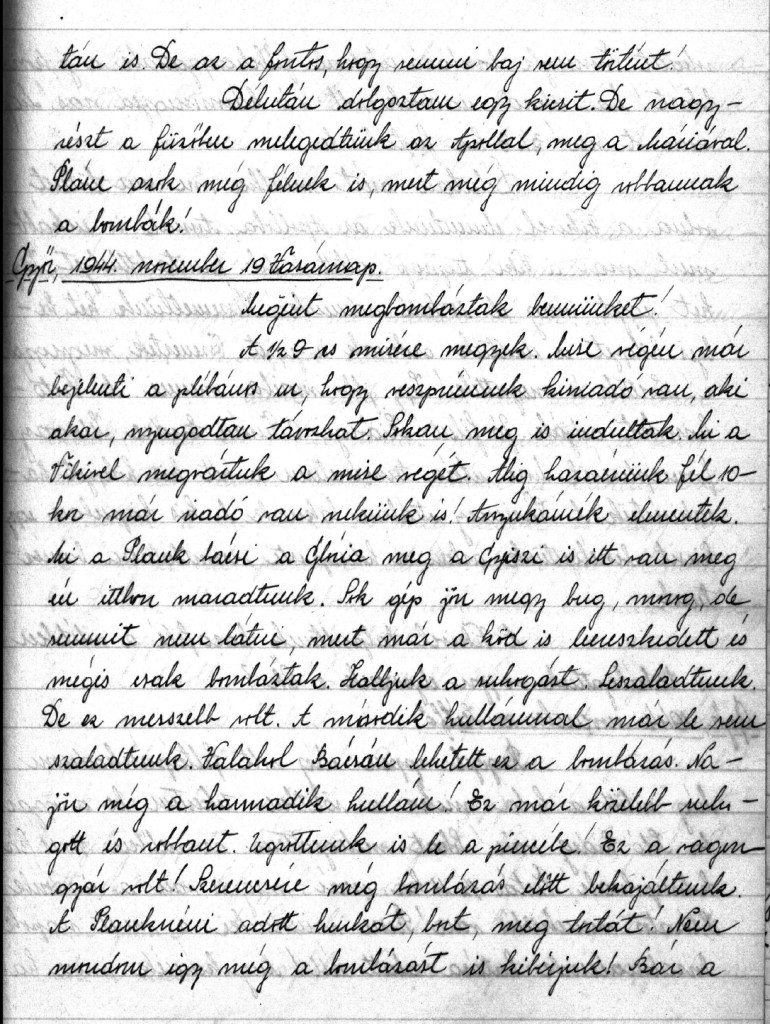 tán is. De az a fontos, hogy semmi baj sem történt!
Délután dolgoztam egy kicsit. De nagy-
részt a fűzőben melegedtünk az Apollal, meg a Máriával.
Pláne azok még félnek is, mert még mindig robbannak
a bombák!
Győr, 1944. november 19 Vasárnap.
Megint megbombáztak bennünket!
A 1/2 9-es misére megyek. Mise végén már
bejelenti a plébános úr, hogy veszprémnek kiriadó van, aki
akar, nyugodtan távozhat. Sokan meg is indultak. Mi a
Vikivel megvártuk a mise végét. Alig hazaérünk fél 10-
kor már riadó van nekünk is! Anyukámék elmentek.
Mi a Plank bácsi a Glória meg a Gyiszi is itt van meg
én itthon maradtunk. Sok gép jön megy bug, morog, de
semmit nem látni, mert már a köd is leereszkedett és
mégis csak bombáztak. Halljuk a suhogást. Leszaladtunk.
De ez messzebb volt. A második hullámnál már le sem
szaladtunk. Valahol Bácsán lehetett ez a bombázás. Na-
jön még a harmadik hullám! Ez már közelebb suho-
gott és robbant. Ugrottunk is le a pincébe! Ez a vagon-
gyár volt! Szerencsére még bombázás előtt bekajáltunk.
A Planknéni adott hurkát, bort, meg tortát! Nem
mondom így még a bombázást is kibírjuk! Bár a